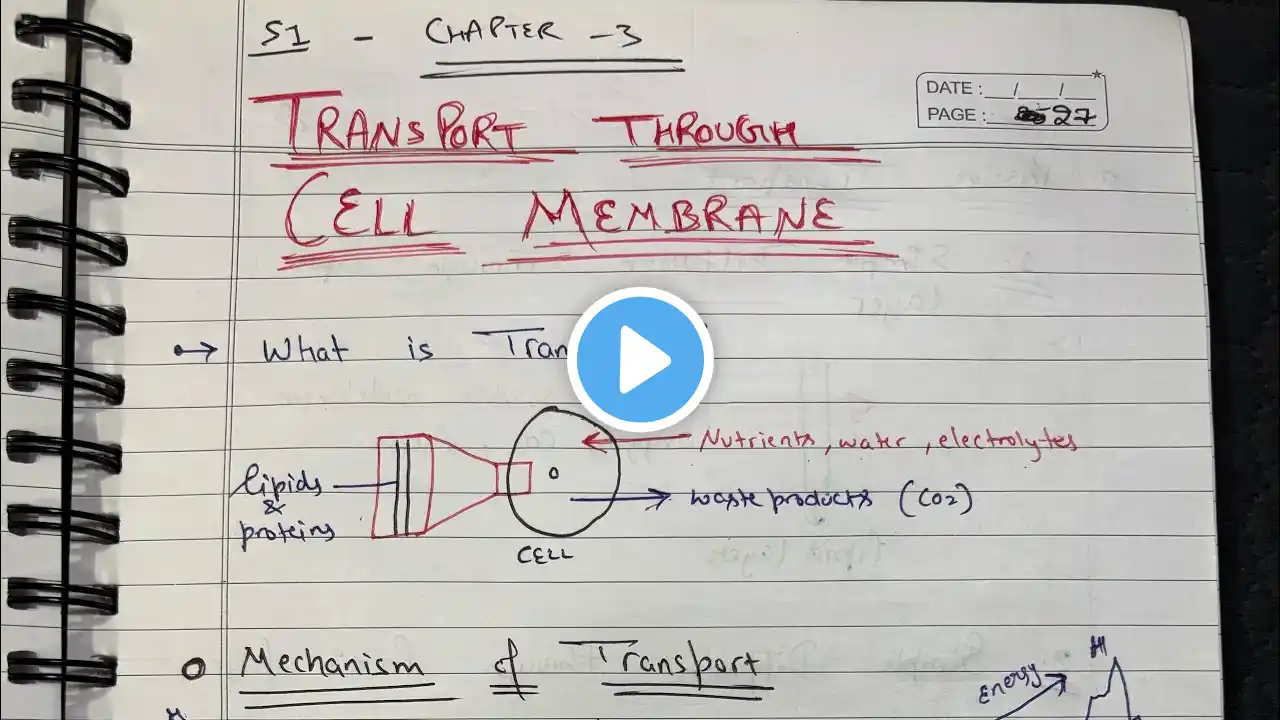 S1 - CHAPTER -3
TRANSPORT THROUGH
CELL MEMBRANE
DATE : __/__/__
PAGE : 27
What is
Nutrients, water, electrolytes
lipids
&
proteins
waste products (CO2)
CELL
Mechanism of Transport
Energy